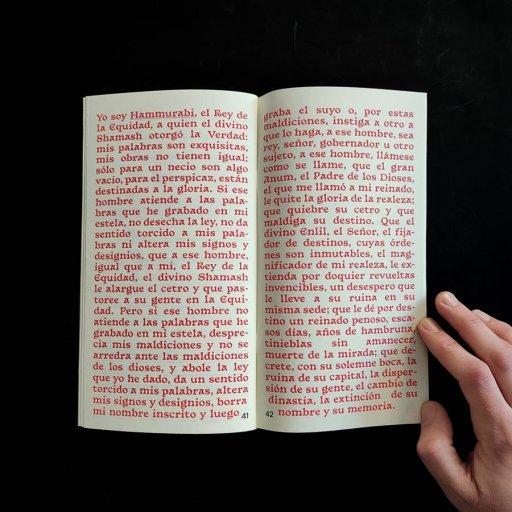 Yo soy Hammurabi, el Rey de
la Equidad, a quien el divino
Shamash otorgó la Verdad:
mis palabras son exquisitas,
mis obras no tienen igual;
sólo para un necio son algo
vacío, para el perspicaz, están
destinadas a la gloria. Si ese
hombre atiende a las pala-
bras que he grabado en mi
estela, no desecha la ley, no da
sentido torcido a mis pala-
bras ni altera mis signos y
designios, que a ese hombre,
igual que a mí, el Rey de la
Equidad, el divino Shamash
le alargue el cetro y que pas-
toree a su gente en la Equi-
dad. Pero si ese hombre no
atiende a las palabras que he
grabado en mi estela, despre-
cia mis maldiciones y no se
arredra ante las maldiciones
de los dioses, y abole la ley
que yo he dado, da un sentido
torcido a mis palabras, altera
mis signos y designios, borra
mi nombre inscrito y luego
41
graba el suyo o, por estas
maldiciones, instiga a otro a
que lo haga, a ese hombre, sea
rey, señor, gobernador u otro
sujeto, a ese hombre, llámese
como se llame, que el gran
Anum, el Padre de los Dioses,
el que me llamó a mi reinado,
le quite la gloria de la realeza;
que quiebre su cetro y que
maldiga su destino. Que el
divino Enlil, el Señor, el fija-
dor de destinos, cuyas órde-
nes son inmutables, el mag-
nificador de mi realeza, le ex-
tienda por doquier revueltas
invencibles, un desespero que
le lleve a su ruina en su
misma sede; que le dé por des-
tino un reinado penoso, esca-
sos días, años de hambruna,
tinieblas sin amanecer,
muerte de la mirada; que de-
crete, con su solemne boca, la
ruina de su capital, la disper-
sión de su gente, el cambio de
dinastía, la extinción de su
nombre y su memoria.
42